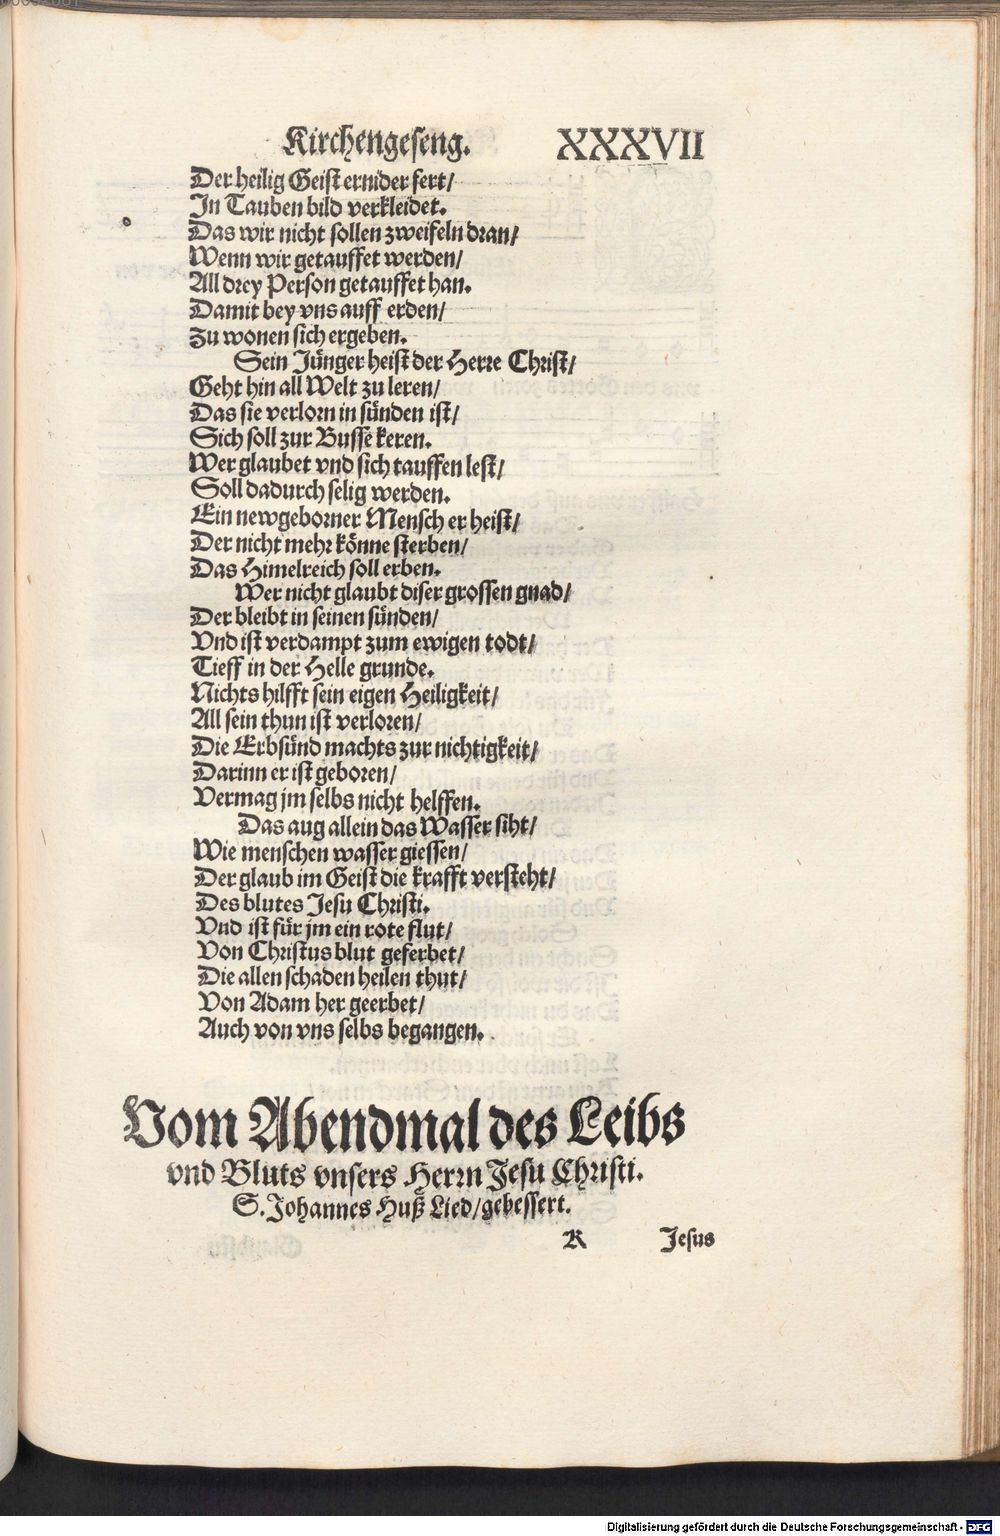 Kirchengeseng. XXXVII
Der heilig Geist ernider fert/
In Tauben bild verkleidet.
Das wir nicht sollen zweifeln dran/
Wenn wir getauffet werden/
All drey Person getauffet han.
Damit bey vns auff erden/
Zu wonen sich ergeben.
Sein Jünger heist der Herre Christ/
Geht hin all Welt zu leren/
Das sie verlorn in sünden ist/
Sich soll zur Busse keren.
Wer glaubet vnd sich tauffen lest/
Soll dadurch selig werden.
Ein newgeborner Mensch er heist/
Der nicht mehr könne sterben/
Das Himelreich soll erben.
Wer nicht glaubt diser grossen gnad/
Der bleibt in seinen sünden/
Vnd ist verdampt zum ewigen todt/
Tieff in der Helle grunde.
Nichts hilfft sein eigen Heiligkeit/
All sein thun ist verloren/
Die Erbsünd machts zur nichtigkeit/
Darinn er ist geboren/
Vermag jm selbs nicht helffen.
Das aug allein das Wasser siht/
Wie menschen wasser giessen/
Der glaub im Geist die krafft versteht/
Des blutes Jesu Christi.
Vnd ist für jm ein rote flut/
Von Christus blut geferbet/
Die allen schaden heilen thut/
Von Adam her geerbet/
Auch von vns selbs begangen.
Vom Abendmal des Leibs
vnd Bluts vnsers Herrn Jesu Christi.
S. Johannes Huß Lied/gebessert.
K Jesus
Digitalisierung gefördert durch die Deutsche Forschungsgemeinschaft - DFG